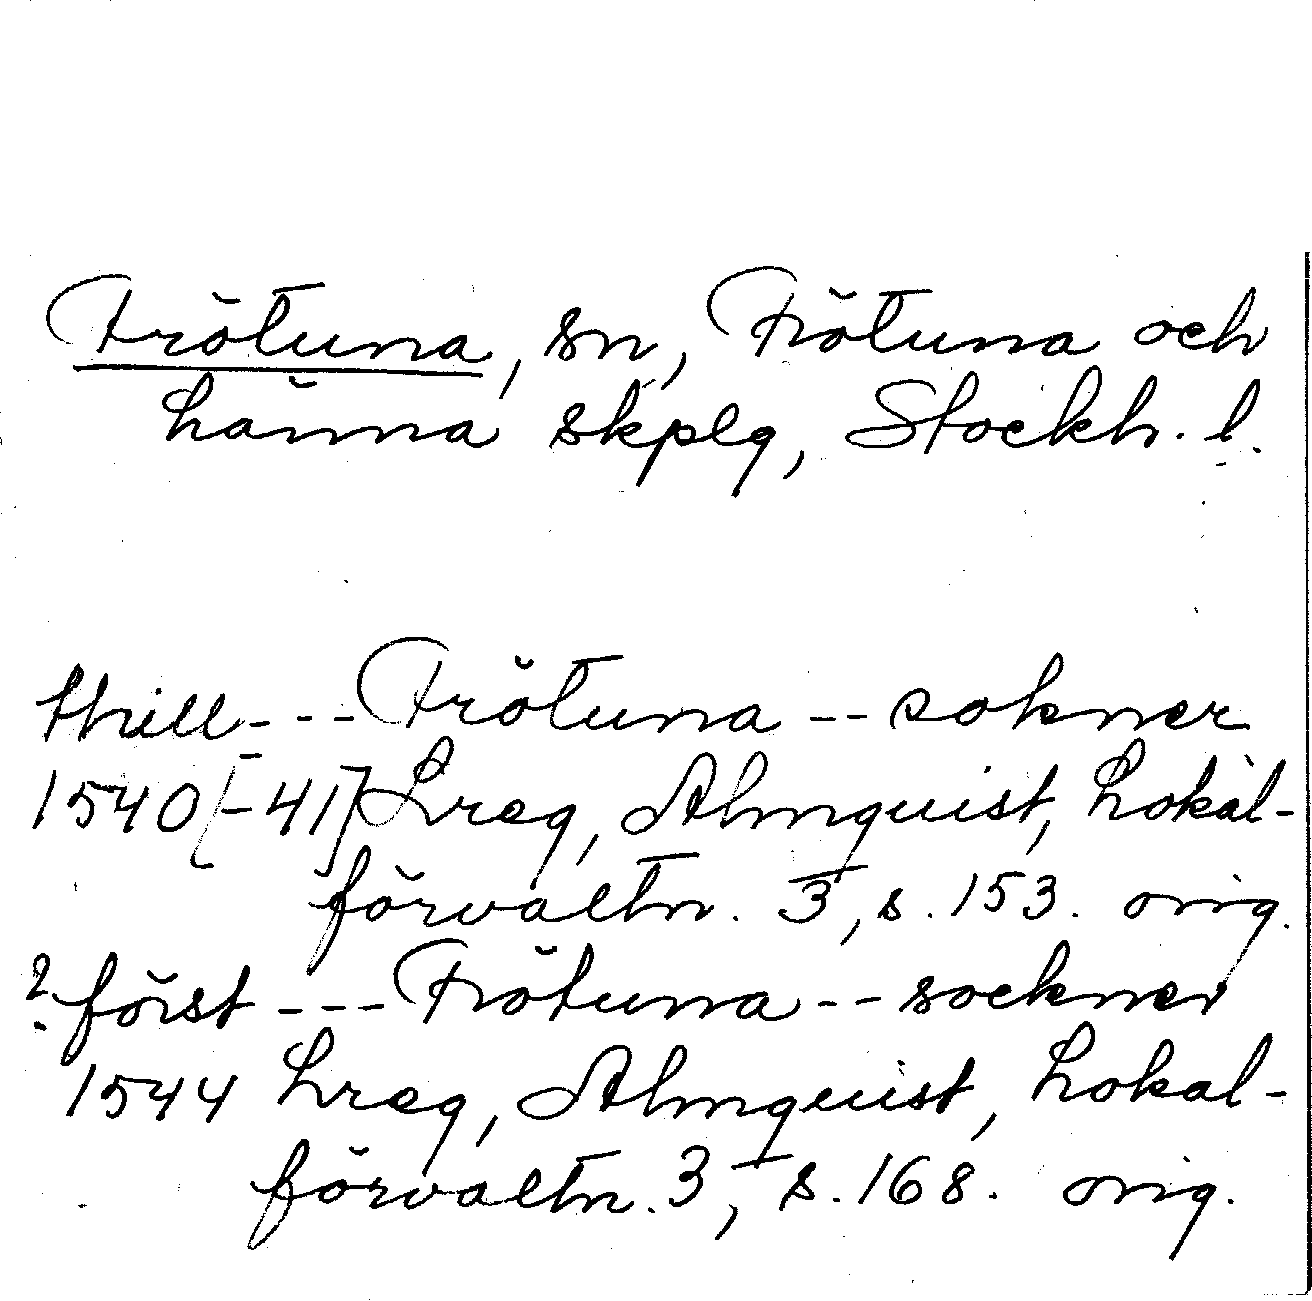 Frötuna, sn, Frötuna och
Länna skplg, Stockh. l.
thill --- Frötuna -- sokner
1540[-41] Lreg, Almquist, Lokal-
förvaltn. 3, s. 153. orig.
? först --- Frötuna -- sockner
1544 Lreg, Almquist, Lokal-
förvaltn. 3, s. 168. orig.